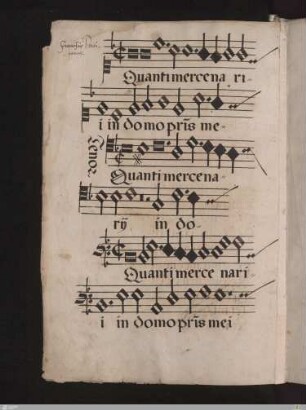 Quanti mercena ri-
i in domo pr̄is me-
Tenor
Quanti mercena-
rij in do-
Quanti merce nari-
i in domo pr̄is mei